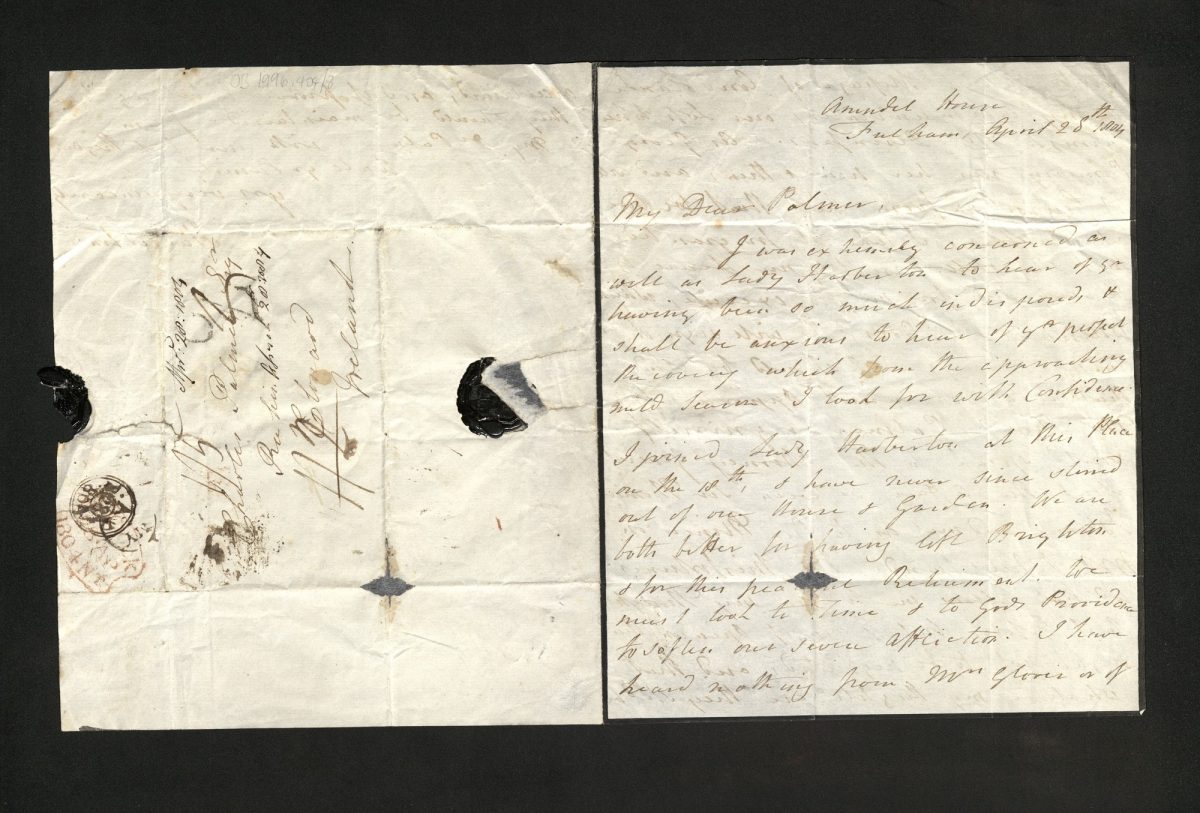 OB 1996.409/8
April 20. 1804
Charles Palmer Esqr
Rahan
Edward
Ireland
Arundel House
Fulham, April 28th 1804
My Dear Palmer,
I was extremely concerned as
well as Lady Harberton to hear of yr
having been so much indisposed &
shall be anxious to hear of yr perfect
recovery which from the approaching
mild Season I look for with Confidence.
I joined Lady Harberton at this Place
on the 18th, & have never since stirred
out of our House & Garden. We are
both better for having left Brighton
& for this Retirement. We
must look to time & to Gods Providence
to soften our severe affliction. I have
heard nothing from Mrs Glover or of